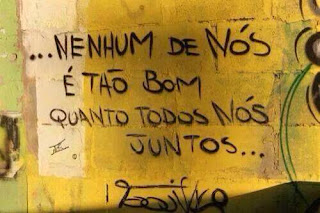 ...NENHUM DE NÓS
É TÃO BOM
QUANTO TODOS NÓS
JUNTOS...